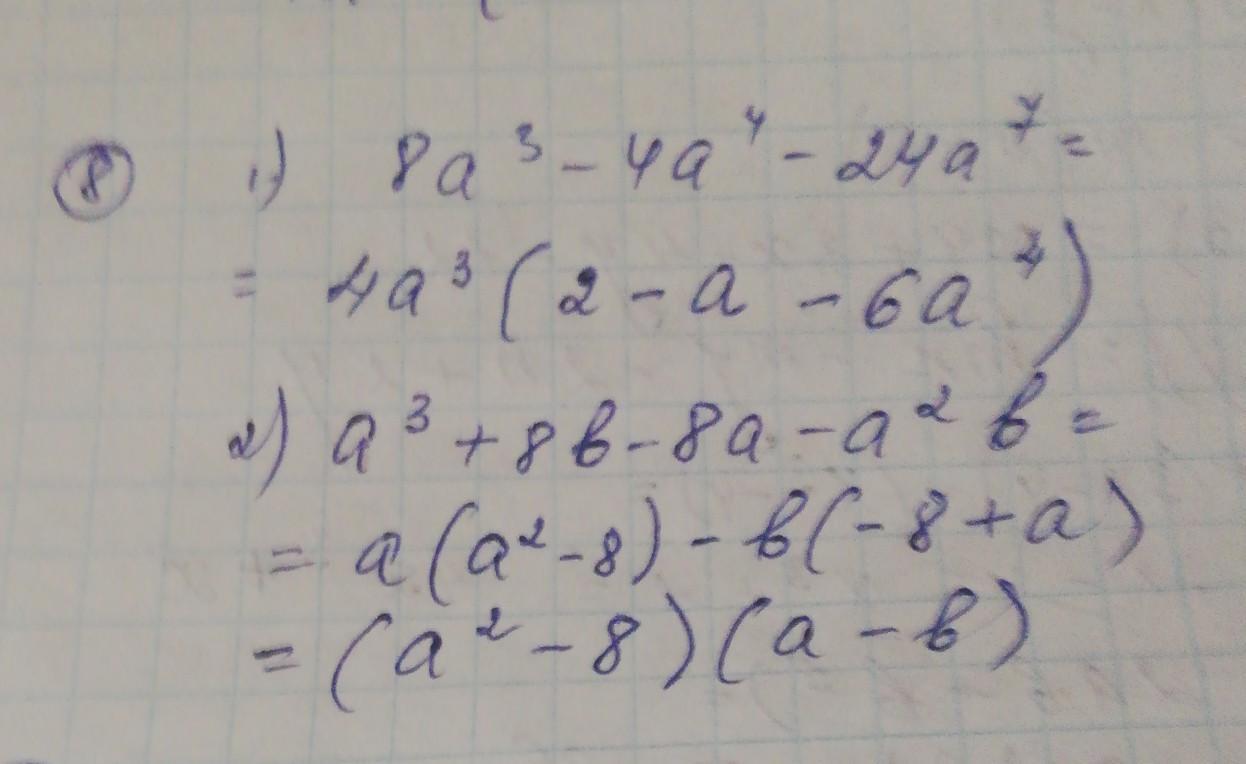 ⑧ 1) 8a³ - 4a⁴ - 24a⁷ =
= 4a³ (2 - a - 6a⁴)
2) a³ + 8b - 8a - a² b =
= a(a² - 8) - b(-8 + a)
= (a² - 8)(a - b)